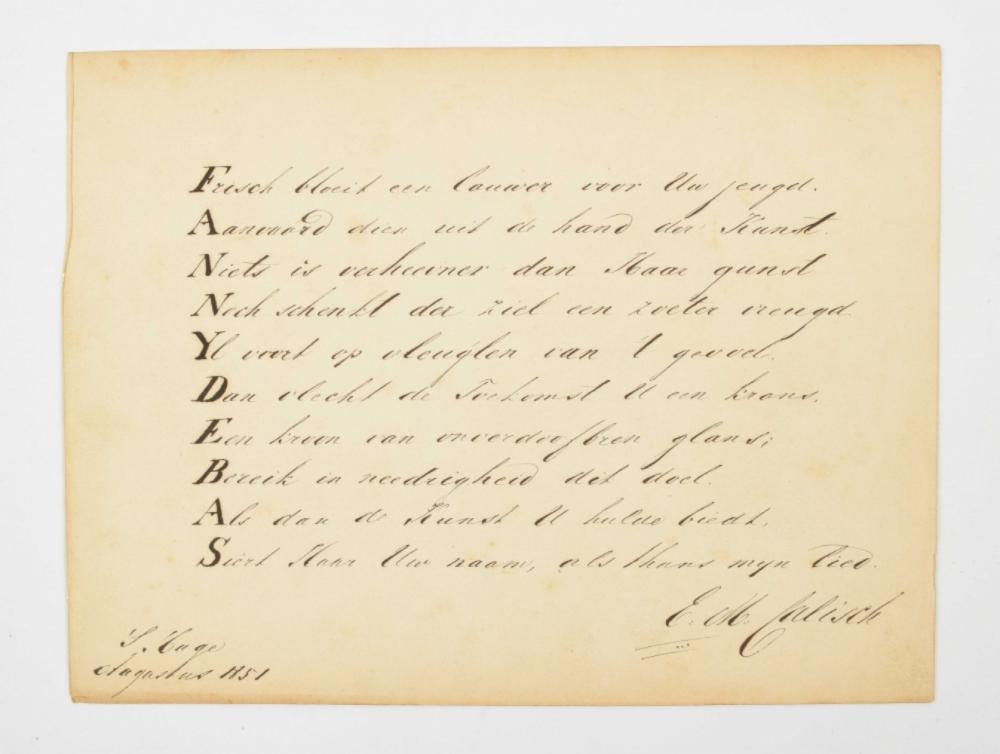 Frisch bloeit een lauwer voor Uw jeugd.
Aanvaard dien uit de hand der Kunst.
Niets is verheevner dan Haar gunst
Noch schenkt der ziel een zoeter vreugd.
Yl voort op vleuglen van 't gevoel.
Dan vlecht de Toekomst U een krans,
Een kroon van onverdoofbren glans;
Bereik in needrigheid dit doel.
Als dan de Kunst U hulde biedt,
Siert Haar Uw naam, als thans myn lied.
E. M. Calisch
S. Hage
Augustus 1851